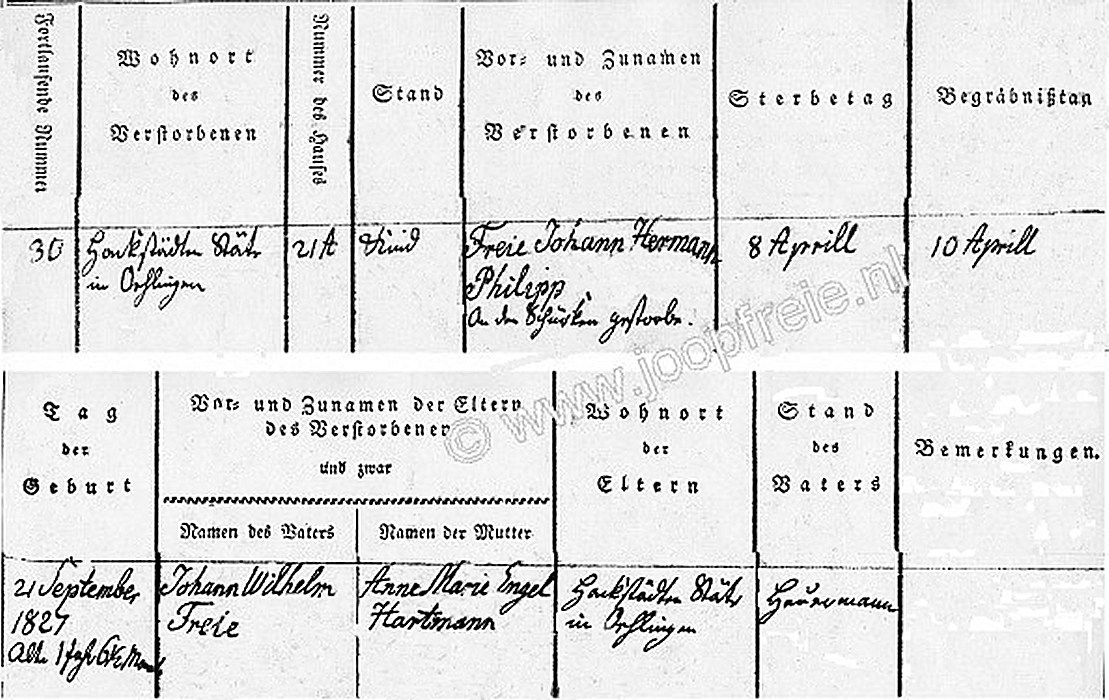 Fortlaufende Nummer
Wohnort
des
Verstorbenen
Nummer des Hauses
Stand
Vor- und Zunamen
des
Verstorbenen
Sterbetag
Begräbnißtag
30
Hackstädten Stäts
in Oehlingen
21A
Kind
Freie Johann Hermann
Philipp
An den gestorbe.
8 Aprill
10 Aprill
© www.joopfreie.nl
Tag
der
Geburt
Vor- und Zunamen der Eltern
des Verstorbenen
und zwar
Namen des Vaters
Namen der Mutter
Wohnort
der
Eltern
Stand
des
Vaters
Bemerkungen.
21 September
1827
Alt 1 Jahr 6½ Mona
Johann Wilhelm
Freie
Anne Marie Engel
Hartmann
Hackstädten Stäts
in Oehlingen
Heuermann